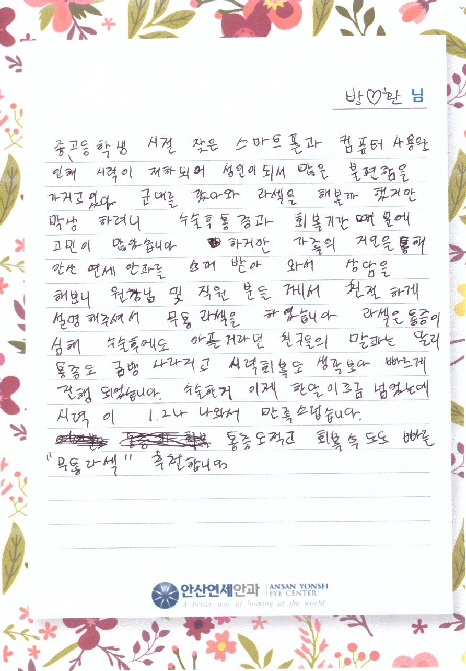 박♡환 님
중고등학생 시절 잦은 스마트폰과 컴퓨터 사용으로
인해 시력이 저하되어 성인이 되서 많은 불편함을
가지고있었다 군대를 갔다와 라섹을 해볼까 했지만
막상 하려니 수술후통증과 회복기간 때문에
고민이 많았습니다 하지만 가족의 권유를 통해
안산연세안과를 소개 받아 와서 상담을
해보니 원장님 및 직원 분들 께서 친절 하게
설명해주셔서 무통 라섹을 하였습니다 라섹은 통증이
심해 수술후에도 아플거라던 친구들의 말과는 달리
통증도 금방 사라지고 시력회복도 생각보다 빠르게
진행 되었습니다. 수술한지 이제 한달이조금 넘었는데
시력이 1.2나 나와서 만족스럽습니다.
통증도적고 회복속도도 빠른
"무통라섹" 추천합니다
안산연세안과 ANSAN YONSEI
EYE CENTER
A better way of looking at the world